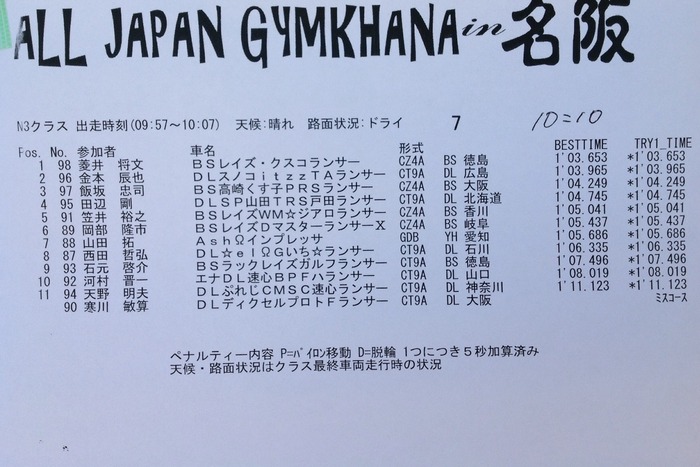 ALL JAPAN GYMKHANA in 名阪
N3クラス 出走時刻(09:57～10:07) 天候:晴れ 路面状況:ドライ 7 10=10
Pos. No. 参加者 車名 形式 BESTTIME TRY1_TIME
1 98 菱井 将文 BSレイズ・クスコランサー CZ4A BS 徳島 1'03.653 *1'03.653
2 96 金本 辰也 DLスノコitzzTAランサー CT9A DL 広島 1'03.965 *1'03.965
3 97 飯坂 忠司 BS高崎くす子PRSランサー CZ4A BS 大阪 1'04.249 *1'04.249
4 95 田辺 剛 DLSP山田TRS戸田ランサー CT9A DL 北海道 1'04.745 *1'04.745
5 91 笠井 裕之 BSレイズWM☆ジアロランサー CZ4A BS 香川 1'05.041 *1'05.041
6 89 岡部 隆市 BSレイズDマスターランサーX CZ4A BS 岐阜 1'05.437 *1'05.437
7 88 山田 拓 AshΩインプレッサ GDB YH 愛知 1'05.686 *1'05.686
8 87 西田 哲弘 DL☆elΩGいち☆ランサー CT9A DL 石川 1'06.335 *1'06.335
9 93 石元 啓介 BSラックレイズガルフランサー CT9A BS 徳島 1'07.496 *1'07.496
10 92 河村 晋一 エナDL速心BPFハランサー CT9A DL 山口 1'08.019 *1'08.019
11 94 天野 明夫 DLぷれじCMSC速心ランサー CT9A DL 神奈川 1'11.123 *1'11.123
90 寒川 敏算 DLディクセルプロトFランサー CT9A DL 大阪 ミスコース
ペナルティー内容 P=パイロン移動 D=脱輪 1つにつき5秒加算済み
天候・路面状況はクラス最終車両走行時の状況